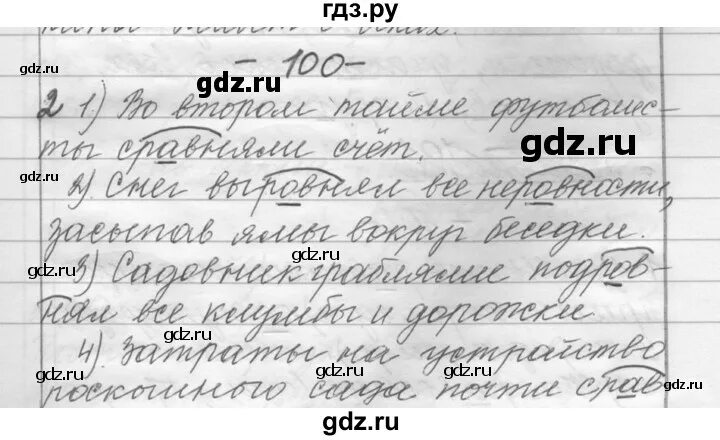 гдз.ру
– 100 –
2 1.) Во втором тайме футболис-
ты сравняли счёт.
2) Снег выровнял все неровности,
засыпав ямы вокруг беседки.
3) Садовник граблями подров-
нял все клумбы и дорожки
4). Затраты на устройство
роскошного сада почти срав
gdz.ru
gdz.ru
gdz.ru
gdz.ru
gdz.ru
gdz.ru
gdz.ru
gdz.ru
gdz.ru
gdz.ru
gdz.ru
gdz.ru
gdz.ru
gdz.ru